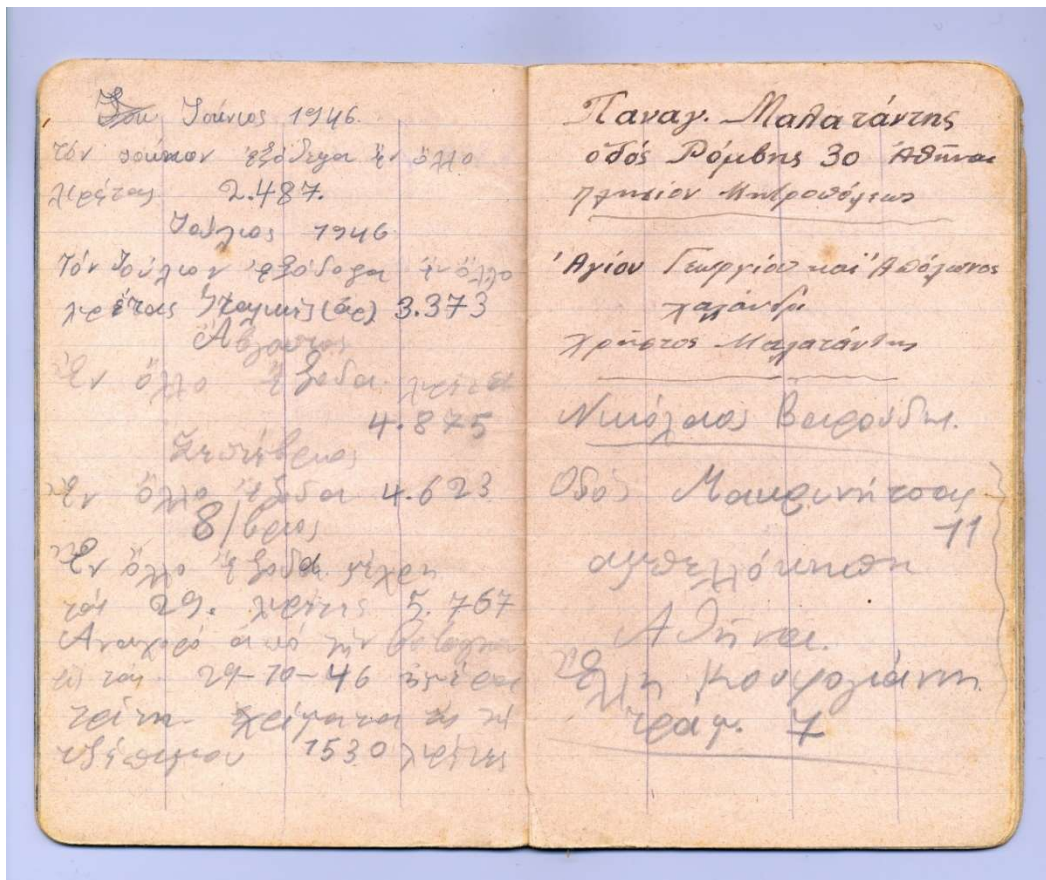 Ἰούνιος 1946.
τόν Ἰούνιον ἐξόδεψα ἐν ὅλλο
λιρέτας 2.487.
Ἰούλιος 1946
Τόν Ἰούλιον ἐξόδοψα ἐν ὅλλο
λιρέτας 3.373
Αὔγουστος
Ἐν ὅλλο ἔξοδα λιρέτες
4.875
Σεπτέβριος
Ἐν ὅλλο ἔξοδα 4.623
8/βριος
Ἐν ὅλλο ἔξοδα μέχρη
τάς 29. λιρέτες 5.767
Αναχορό ἀπό τήν
εἰς τάς 29-10-46 ἡμέρα
τρίτη χρίματα
1530 λιρέτες
Παναγ. Μαλατάντης
ὁδός Ρόμβης 30 Ἀθῆναι
πλησίον Μητροπόλεως
Ἁγίου Γεωργίου καί Ἀπόλωνος
χαλάνδρι
Χρῆστος Μαλατάντης
Νικόλαος Βαφούδη.
Οδός Μακρινήτσας
11
αμπελλόκηποι
Αθῆναι.
Ἔλλη
τράφ. 7